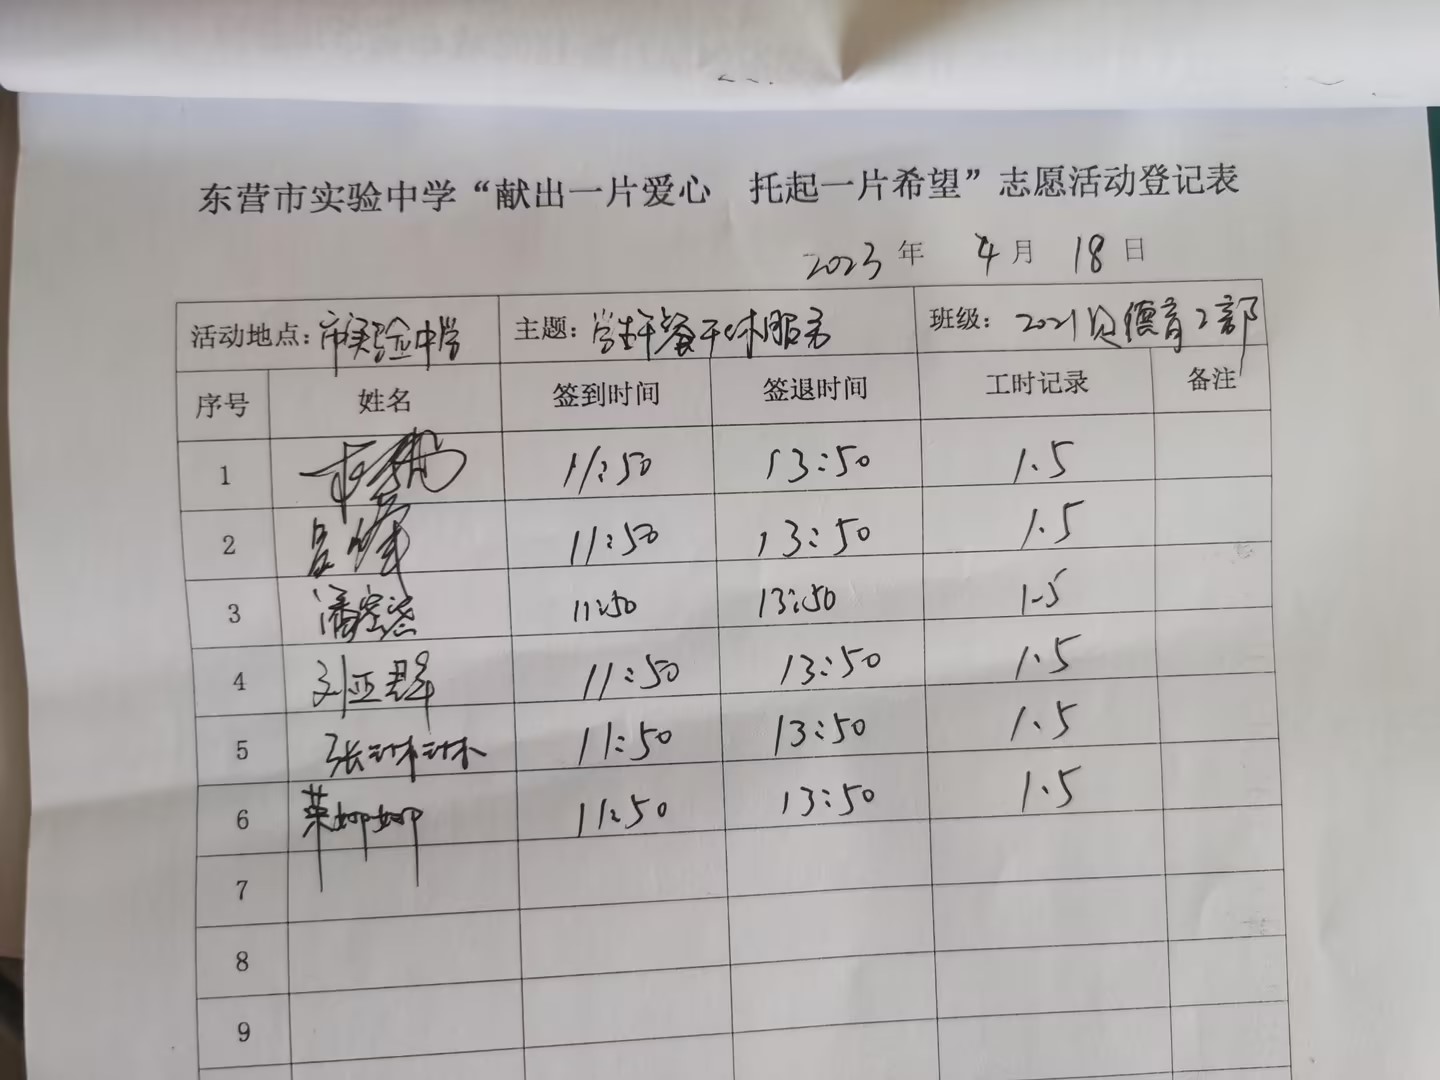 东营市实验中学“献出一片爱心 托起一片希望”志愿活动登记表
2023年 4月 18日
活动地点:市实验中学 主题:学生午餐午休服务 班级:2021级德育2部
序号 姓名 签到时间 签退时间 工时记录 备注
1 11:50 13:50 1.5
2 11:50 13:50 1.5
3 潘 11:50 13:50 1.5
4 刘亚群 11:50 13:50 1.5
5 张琳琳 11:50 13:50 1.5
6 娜娜 11:50 13:50 1.5
7
8
9